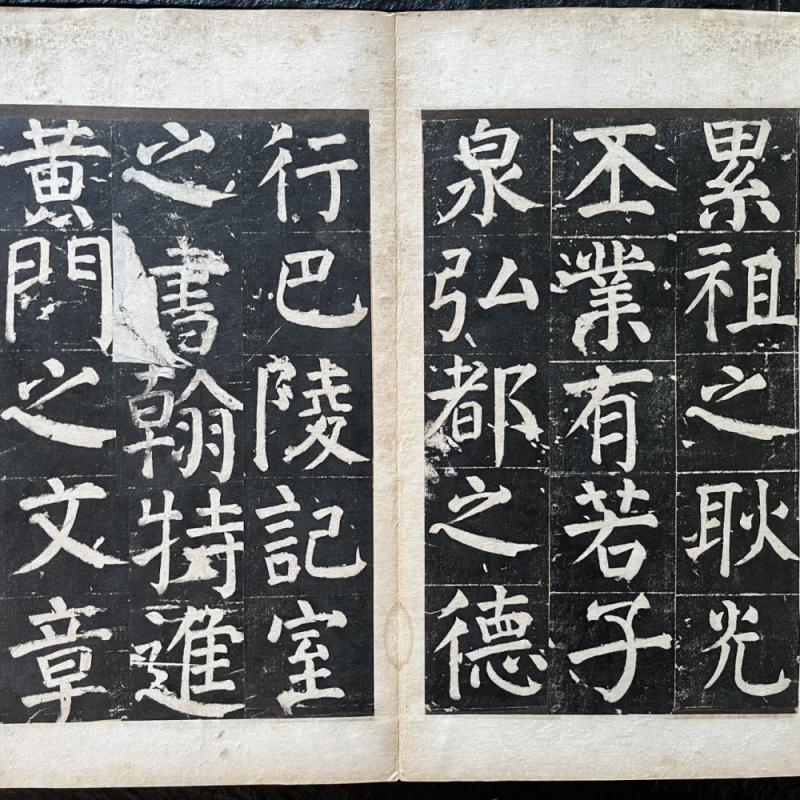 累祖之耿光
丕業有若子
泉弘都之德
行巴陵記室
之書翰特進
黃門之文章